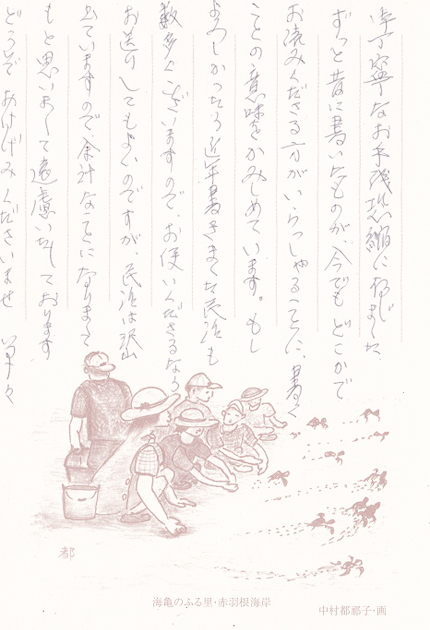 丁寧なお手紙恐縮に存じました。
ずっと昔に書いたものが、今でもどこかで
お読みくださる方がいらっしゃることに、書く
ことの意味をかみしめています。もし
よろしかったら近年書きました民話も
数多くございますので、お使いくださるなら
お送りしてもよいのですが、民話は沢山
出ていますので、余計なことになりましても
もと思いまして遠慮いたしております
どうぞ おはげみくださいませ 草々
都
海亀のふる里・赤羽根海岸
中村都耶子・画